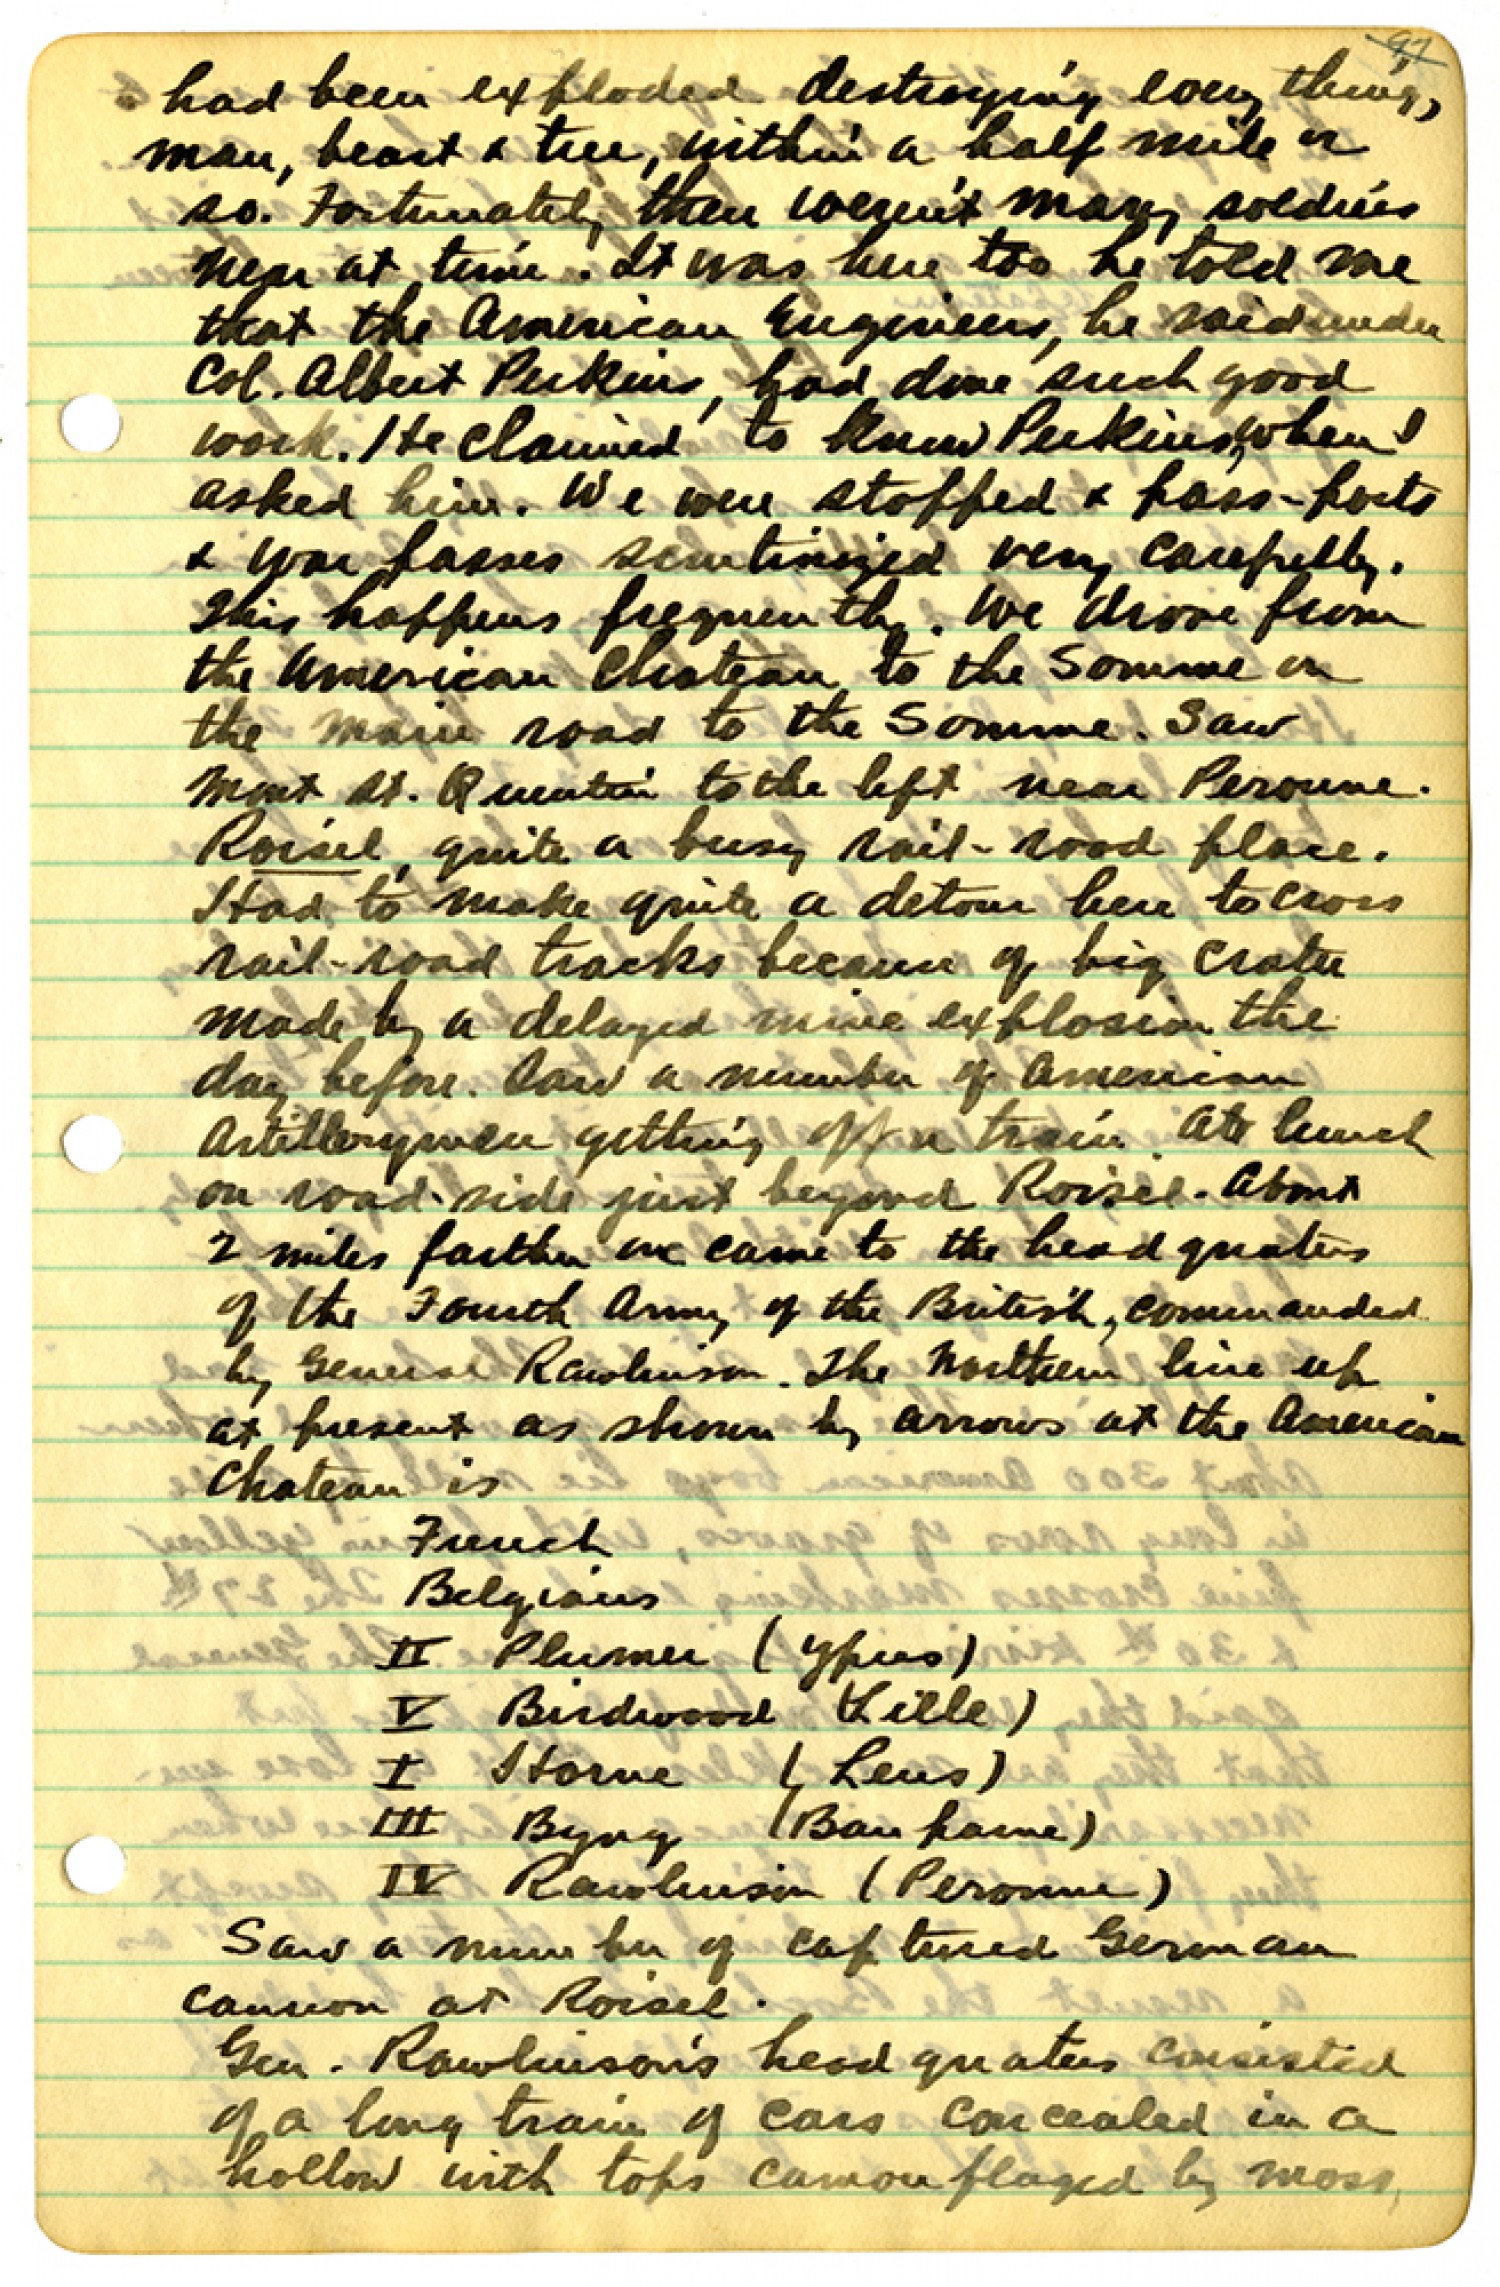 97
had been exploded destroying every thing,
man, beast & tree, within a half mile or
so. Fortunately there weren't many soldiers
near at time. It was here too he told me
that the American Engineers, he said under
Col. Albert Perkins, had done such good
work. He claimed to know Perkins, when I
asked him. We were stopped & pass-ports
& war passes scrutinized very carefully.
This happens frequently. We drove from
the American Chateau to the Somme on
the main road to the Somme. Saw
Mont St. Quentin to the left near Peronne.
Roisel, quite a busy rail-road place.
Had to make quite a detour here to cross
rail-road tracks because of big crater
made by a delayed mine explosion the
day before. Saw a number of American
Artillerymen getting off a train. Ate lunch
on road-side just beyond Roisel. About
2 miles farther we came to the head quaters
of the Fourth Army of the British, commanded
by General Rawlinson. The Northern line up
at present as shown by arrows at the American
Chateau is
French
Belgians
II Plumer (Ypres)
V Birdwood (Lille)
I Horne (Lens)
III Byng (Baupaume)
IV Rawlinson (Peronne)
Saw a number of captured German
cannon at Roisel.
Gen. Rawlinson's head quaters consisted
of a long train of cars concealed in a
hollow with tops camouflaged by moss,